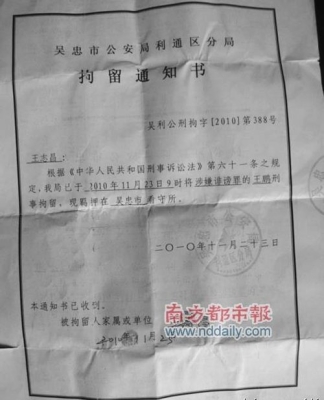 吴忠市公安局利通区分局
拘留通知书
吴利公刑拘字[2010]第388号
王志昌：
根据《中华人民共和国刑事诉讼法》第六十一条之规
定，我局已于 2010年11月23日9时将涉嫌诽谤罪的王鹏刑
事拘留。现羁押在 吴忠市 看守所。
二〇一〇年十一月二十三日
本通知书已收到。
被拘留人家属或单位
南方都市報
www.nddaily.com